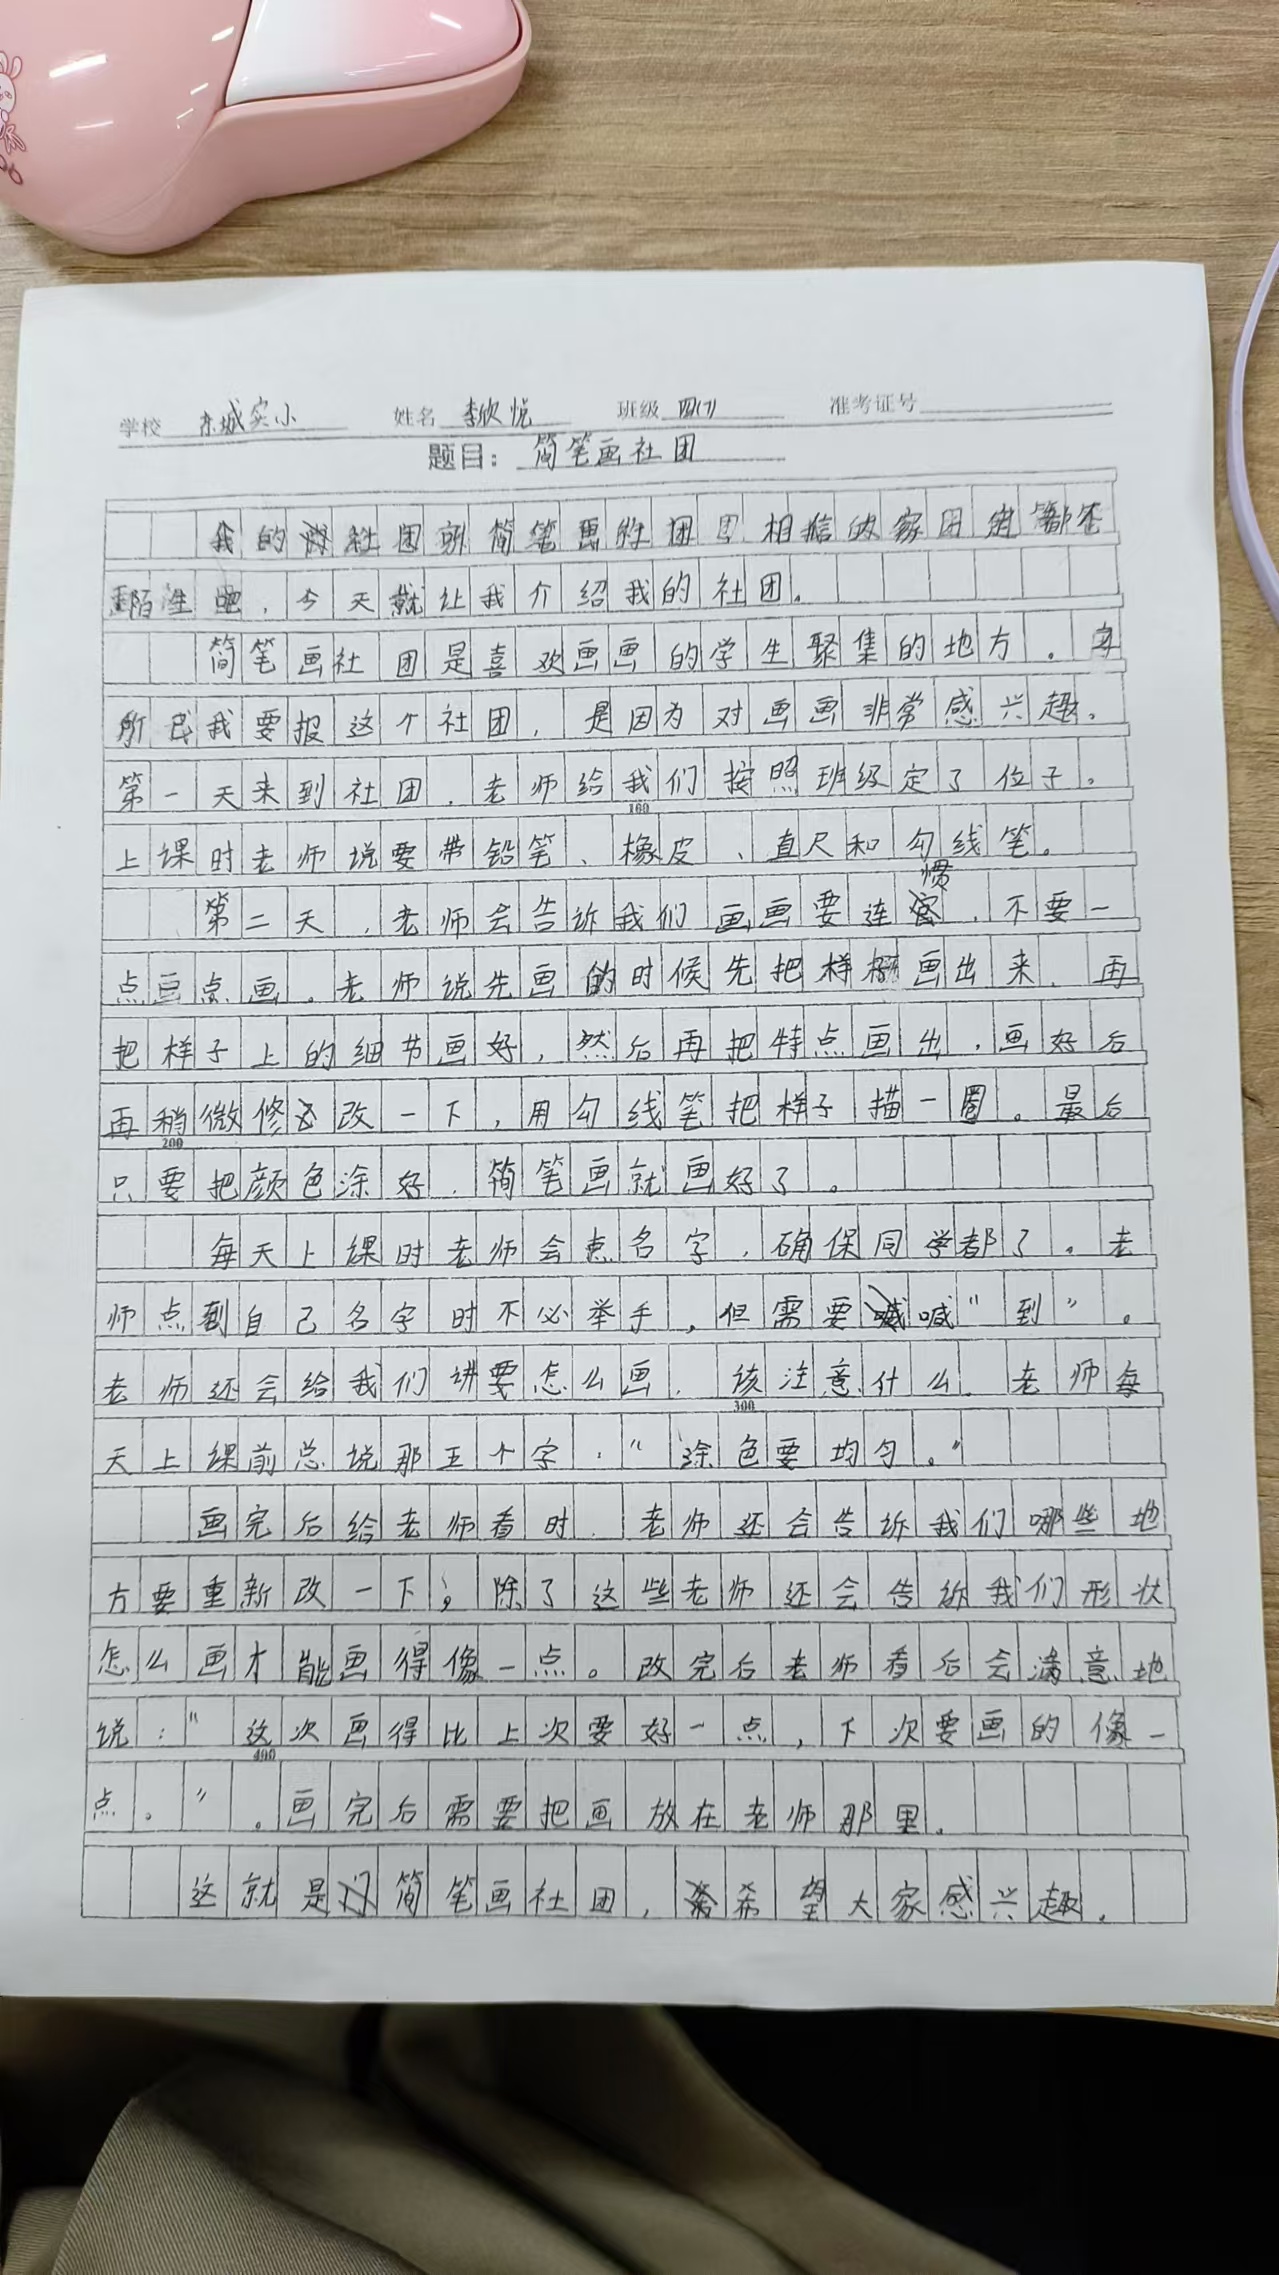 学校 东城实小 姓名 李欣悦 班级 四(7) 准考证号
题目：简笔画社团
我的社团 简笔 团 相信 家 都不
陌生吧，今天就让我介绍我的社团。
简笔画社团是喜欢画画的学生聚集的地方。
所 我要报这个社团，是因为对画画非常感兴趣，
第一天来到社团，老师给我们按照班级定了位子。
160
上课时老师说要带铅笔、橡皮、直尺和勾线笔。
第二天，老师会告诉我们画画要连惯，不要一
点豆点画。老师说先画的时候先把样 画出来，再
把样子上的细节画好，然后再把特点画出，画好后
再稍微修改一下，用勾线笔把样子描一圈。最后
200
只要把颜色涂好，简笔画就画好了。
每天上课时老师会点名字，确保同学都了。老
师点到自己名字时不必举手，但需要喊"到"。
老师还会给我们讲要怎么画，该注意什么，老师每
300
天上课前总说那五个字："涂色要均匀。"
画完后给老师看时，老师还会告诉我们哪些地
方要重新改一下，除了这些老师还会告诉我们形状
怎么画才能画得像一点。改完后老师看后会满意地
说："这次画得比上次要好一点，下次要画的像一
400
点。"。画完后需要把画放在老师那里。
这就是简笔画社团，希望大家感兴趣。